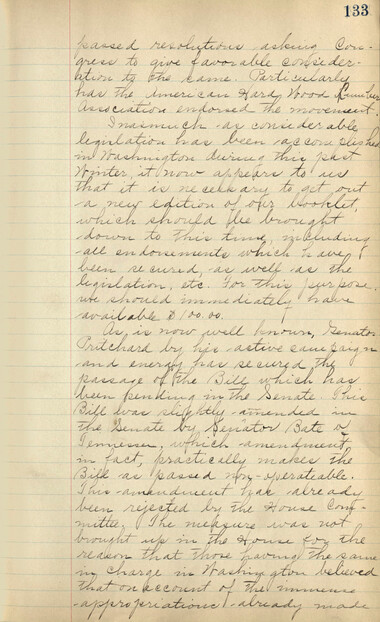 133
passed resolutions asking Con-
gress to give favorable consider-
ation to the same. Particularly
has the American Hard Wood Lumber
Association endorsed the movement.
Inasmuch as considerable
legislation has been accomplished
in Washington during this past
Winter, it now appears to us
that it is necessary to get out
a new edition of our booklet,
which should be brought
down to this time, including
all endorsements which have
been secured, as well as the
legislation, etc. For this purpose
we should immediately have
available $100.00.
As is now well known, Senator
Pritchard by his active campaign
and energy has secured the
passage of the Bill which has
been pending in the Senate. This
Bill was slightly amended in
the Senate by Senator Bate of
Tennessee, which amendment,
in fact, practically makes the
Bill as passed non-operateable.
This amendment has already
been rejected by the House Com-
mittee. The measure was not
brought up in the House for the
reason that those having the same
in charge in Washington believed
that on account of the immense
appropriations already made